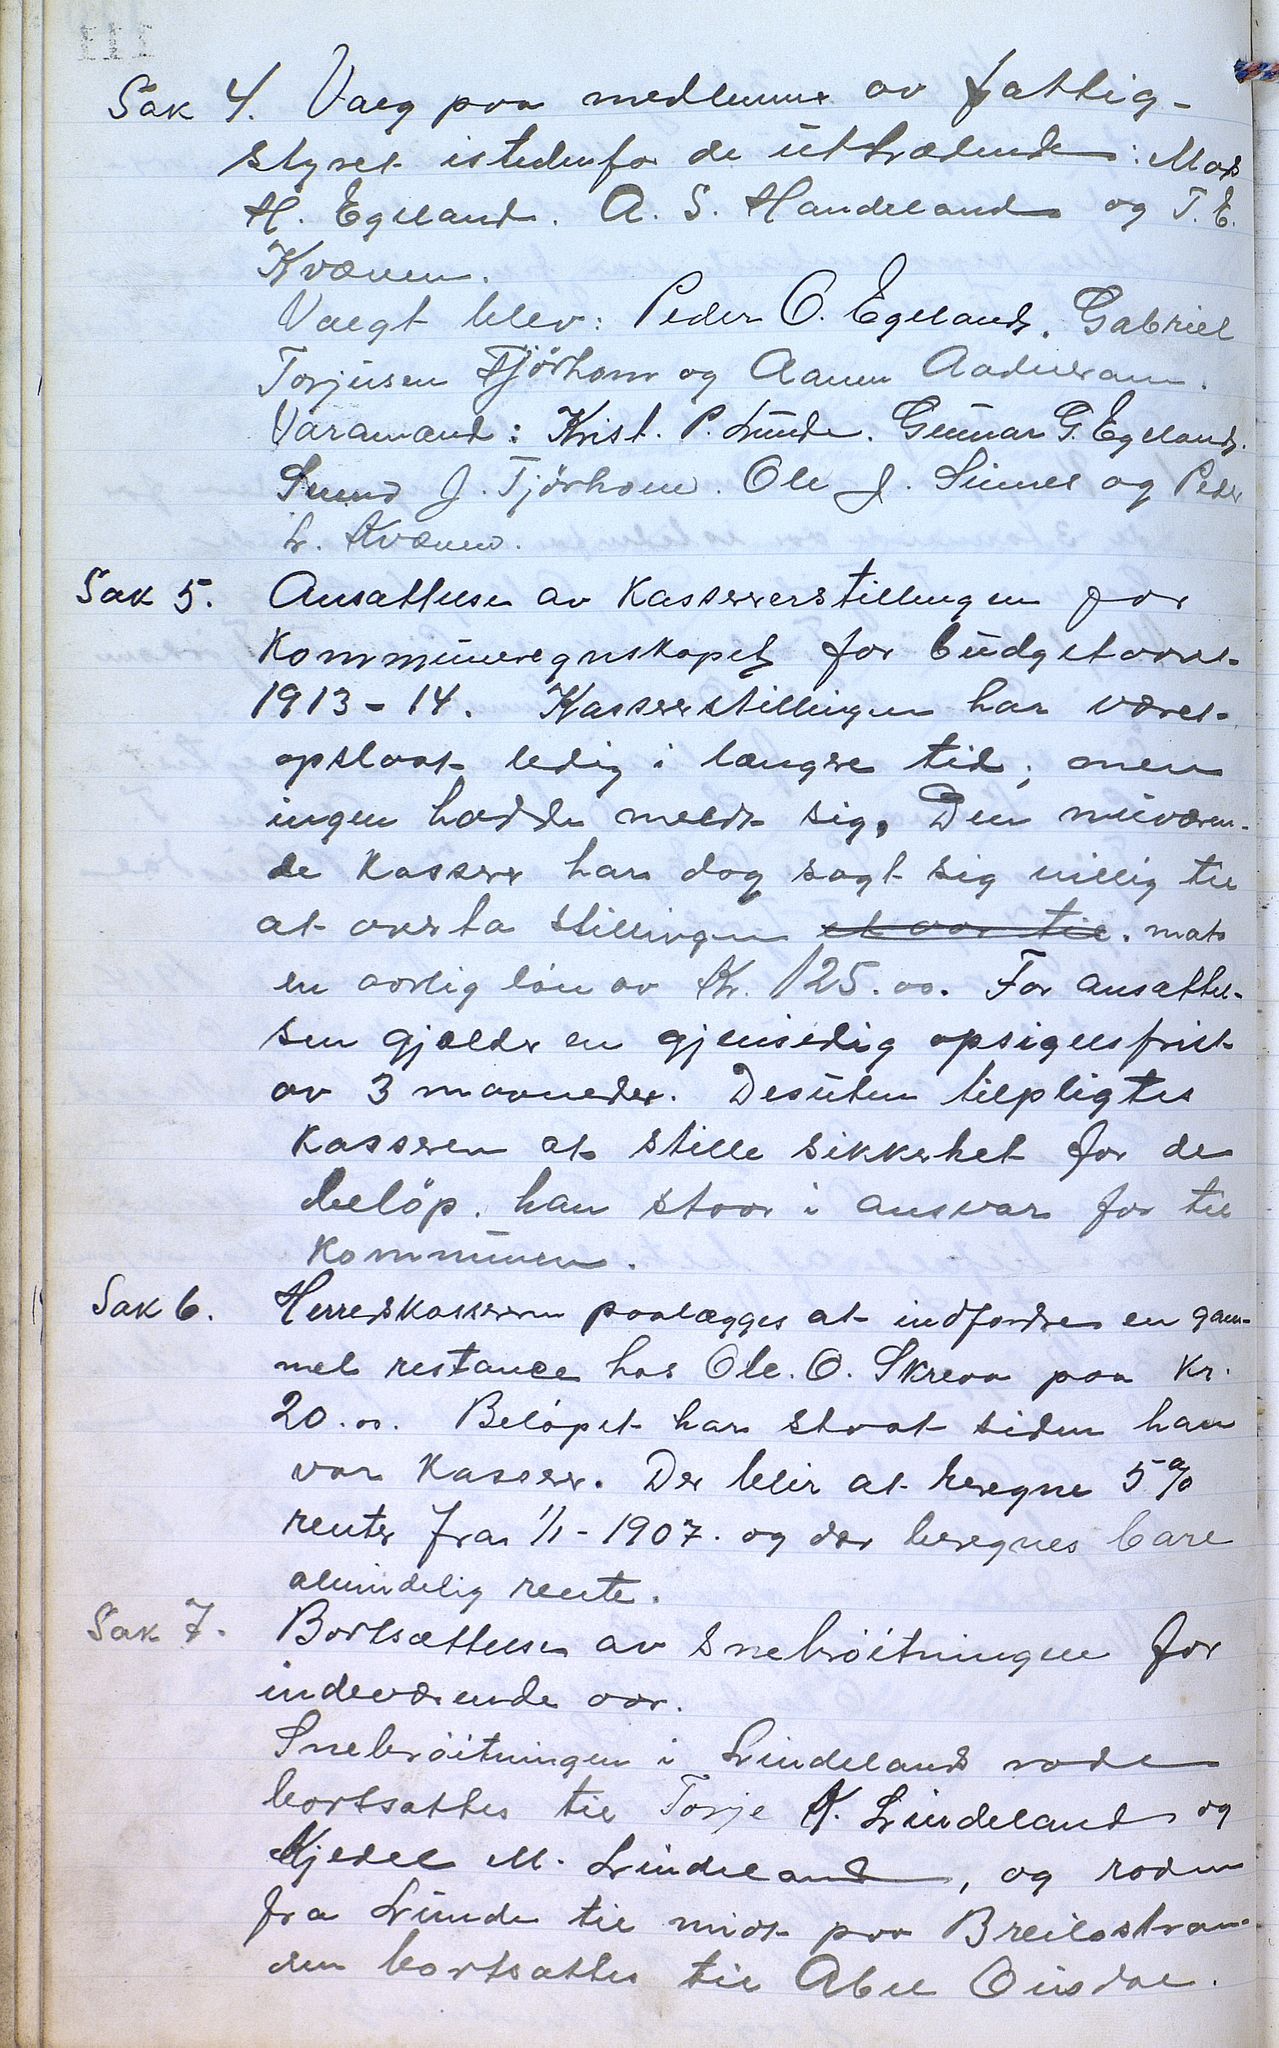 Sak 4. Valg paa medlemmer av fattig-
styret istedenfor de uttrædende: Mads
H. Egeland. A. S. Handeland og T. E.
Kvænen.
Valgt blev: Peder O. Egeland. Gabriel
Torjusen Tjörhom og Aanen Aadneram.
Varamænd: Krist. P. Lunde. Gunnar G. Egeland.
Svend J. Tjörhom. Ole J. Sinnes og Peder
L. Kvænen.
Sak 5. Ansættelse av kassererstillingen for
kommuneregnskapet for budgetaaret
1913-14. Kassererstillingen har været
opslaat ledig i længere tid, men
ingen hadde meldt sig. Den nuværen-
de kasserer har dog sagt sig villig til
at overta stillingen et aar til. mot
en aarlig løn av Kr. 125.00. For ansættel-
sen gjælder en gjensidig opsigelsfrist
av 3 maaneder. Desuten tilpligtes
kassereren at stille sikkerhet for de
beløp, han staar i ansvar for til
kommunen.
Sak 6. Herredskassereren paalægges at indfordre en gam-
mel restance hos Ole. O. Skreaa paa Kr.
20.00. Beløpet har staat siden han
var kasserer. Der blir at beregne 5 %
renter fra 1/1-1907. og der beregnes bare
almindelig rente.
Sak 7. Bortsættelse av snebröitningen for
indeværende aar.
Snebröitningen i Lindelands rode
bortsattes til Torje K. Lindeland og
Kjedel M. Lindeland, og roden
fra Lunde til midt paa Breilastran-
den bortsattes til Abel Ousdal.